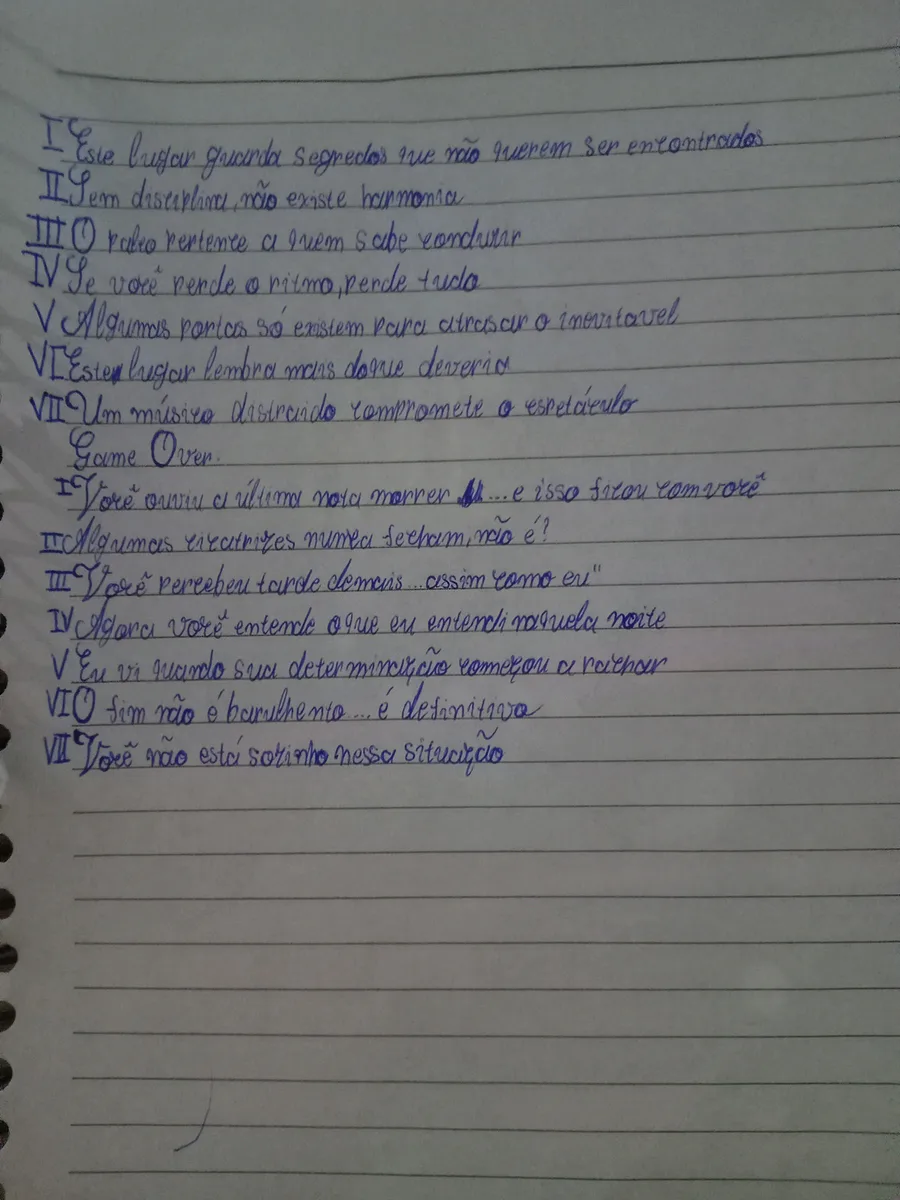 I Este lugar guarda segredos que não querem ser encontrados
II Sem disciplina, não existe harmonia
III O palco pertence a quem sabe conduzir
IV Se você perde o ritmo, perde tudo
V Algumas portas só existem para atrasar o inevitavel
VI Este lugar lembra mais do que deveria
VII Um músico distraido compromete o espetáculo
Game Over.
I Você ouviu a última nota morrer ... e isso ficou com você
II Algumas cicatrizes nunca fecham, não é?
III "Você percebeu tarde demais... assim como eu"
IV Agora você entende o que eu entendi naquela noite
V Eu vi quando sua determinação começou a rachar
VI O fim não é barulhento... é definitivo
VII Você não está sozinho nessa situação